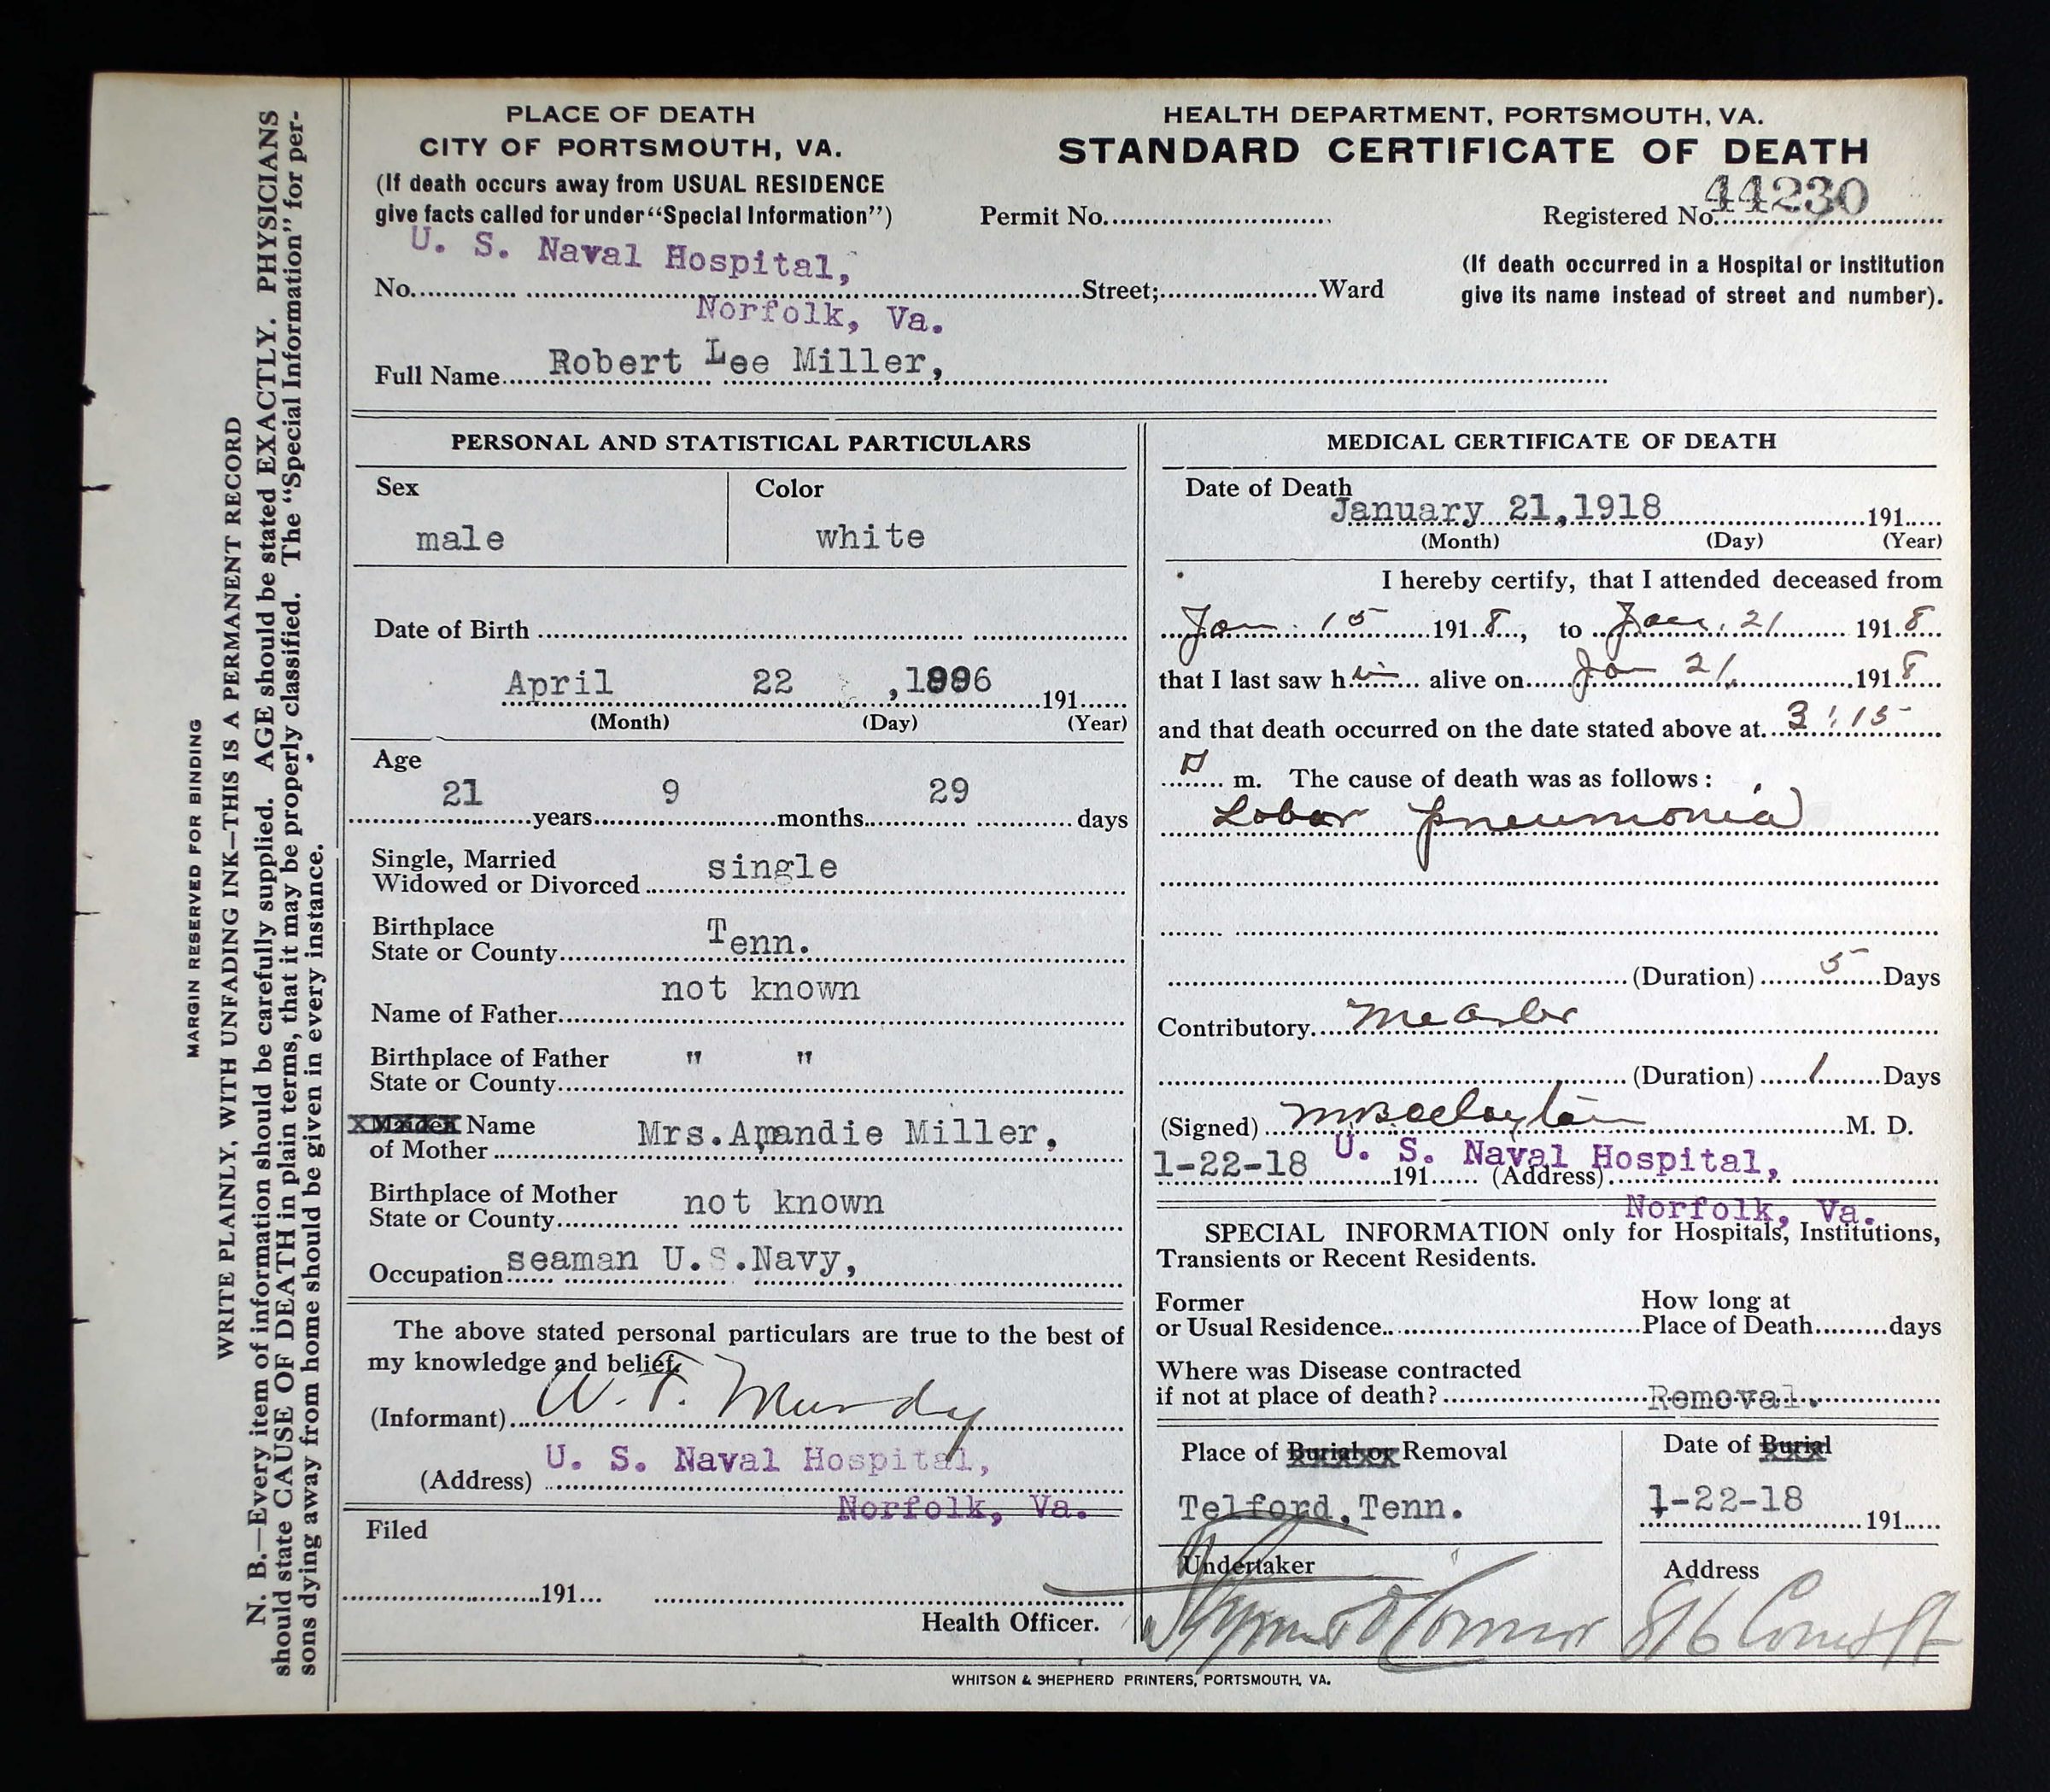 PLACE OF DEATH
CITY OF PORTSMOUTH, VA.
(If death occurs away from USUAL RESIDENCE
give facts called for under "Special Information")
HEALTH DEPARTMENT, PORTSMOUTH, VA.
STANDARD CERTIFICATE OF DEATH
Permit No.
Registered No. 44230
U. S. Naval Hospital,
No. Street; Ward
Norfolk, Va.
(If death occurred in a Hospital or institution
give its name instead of street and number).
Full Name Robert Lee Miller,
PERSONAL AND STATISTICAL PARTICULARS
Sex
male
Color
white
Date of Birth
April 22 ,1896 191
(Month) (Day) (Year)
Age
21 years 9 months 29 days
Single, Married
Widowed or Divorced single
Birthplace
State or County Tenn.
not known
Name of Father
Birthplace of Father " "
State or County
Maiden Name
of Mother Mrs. Amandie Miller,
Birthplace of Mother
State or County not known
Occupation seaman U.S.Navy,
The above stated personal particulars are true to the best of
my knowledge and belief.
(Informant) W. T. Mundy
(Address) U. S. Naval Hospital,
Norfolk, Va.
Filed
191
Health Officer.
MEDICAL CERTIFICATE OF DEATH
Date of Death
January 21,1918 191
(Month) (Day) (Year)
I hereby certify, that I attended deceased from
Jan. 15 1918, to Jan. 21 1918
that I last saw him alive on Jan 21 1918
and that death occurred on the date stated above at 3:15
P m. The cause of death was as follows:
Lobar pneumonia
(Duration) 5 Days
Contributory Measles
(Duration) 1 Days
(Signed) Clayton M. D.
1-22-18 191 (Address) U. S. Naval Hospital,
Norfolk, Va.
SPECIAL INFORMATION only for Hospitals, Institutions,
Transients or Recent Residents.
Former
or Usual Residence
How long at
Place of Death days
Where was Disease contracted
if not at place of death? Removal.
Place of Burial or Removal
Telford, Tenn.
Date of Burial
1-22-18 191
Undertaker
O'Connor
Address
816
WHITSON & SHEPHERD PRINTERS, PORTSMOUTH, VA.
MARGIN RESERVED FOR BINDING
WRITE PLAINLY, WITH UNFADING INK—THIS IS A PERMANENT RECORD
N. B.—Every item of information should be carefully supplied. AGE should be stated EXACTLY. PHYSICIANS
should state CAUSE OF DEATH in plain terms, that it may be properly classified. The "Special Information" for per-
sons dying away from home should be given in every instance.